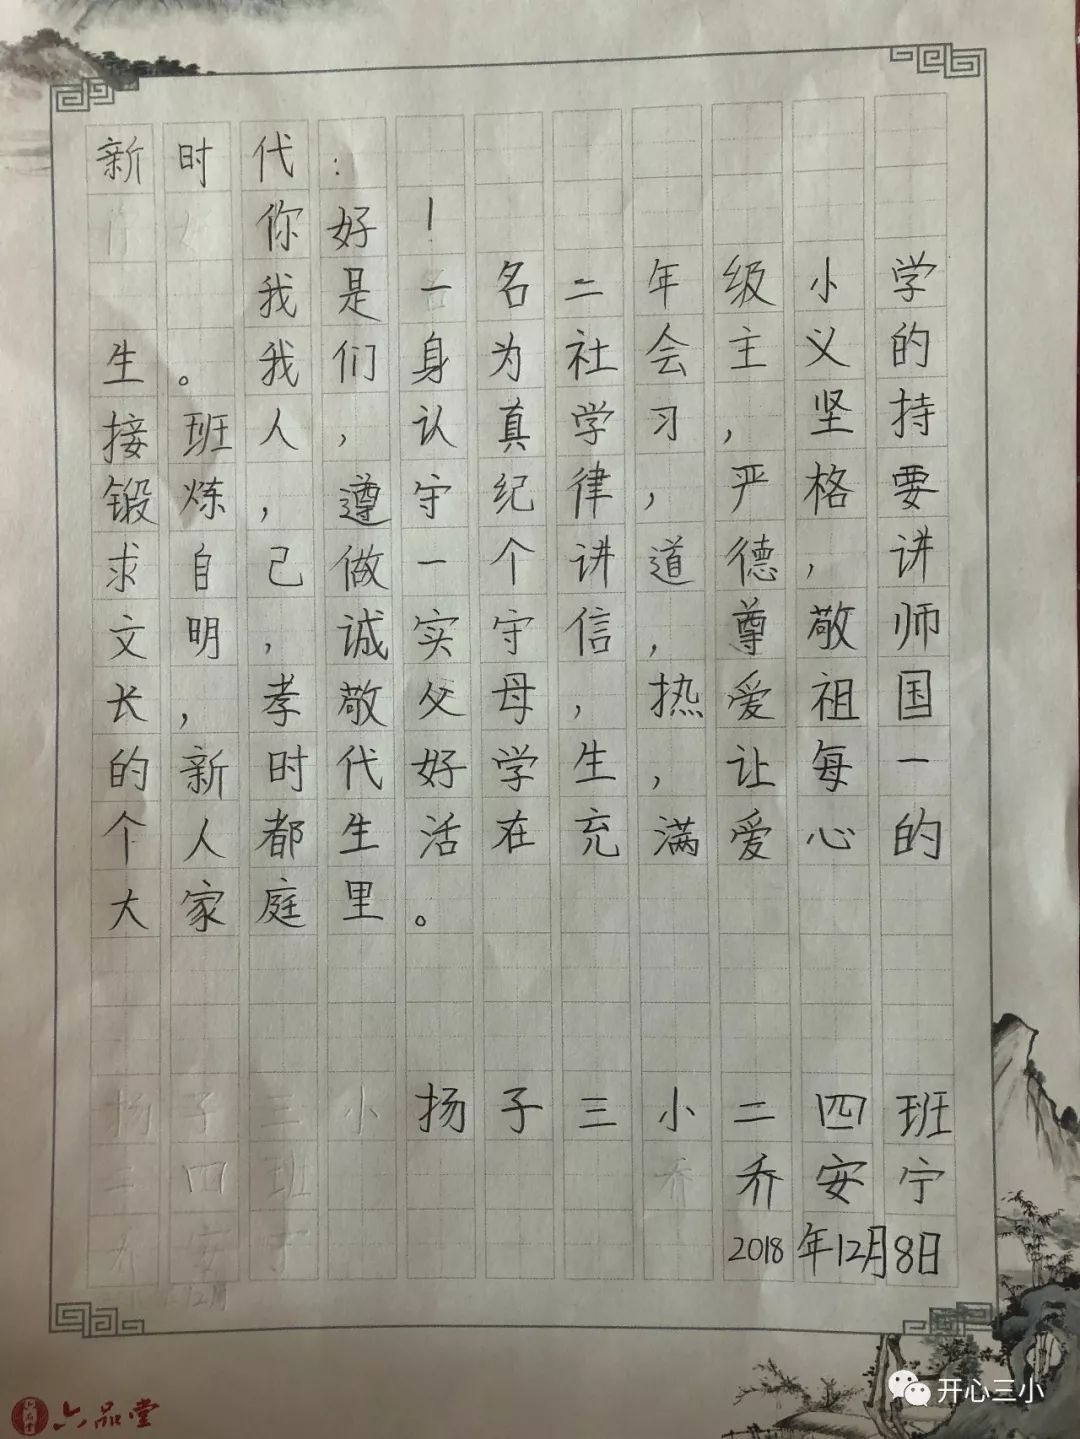 新时代：
你好！
我是一名二年级小学
生。我们身为社会主义的
接班人，认真学习，坚持
锻炼，遵守纪律，严格要
求自己，做一个讲道德，讲
文明，诚实守信，尊敬师
长，孝敬父母，热爱祖国
的新时代好学生，让每一
个人都生活在充满爱心的
大家庭里。
扬子三小二四班
乔安宁
2018年12月8日
六品堂
开心三小